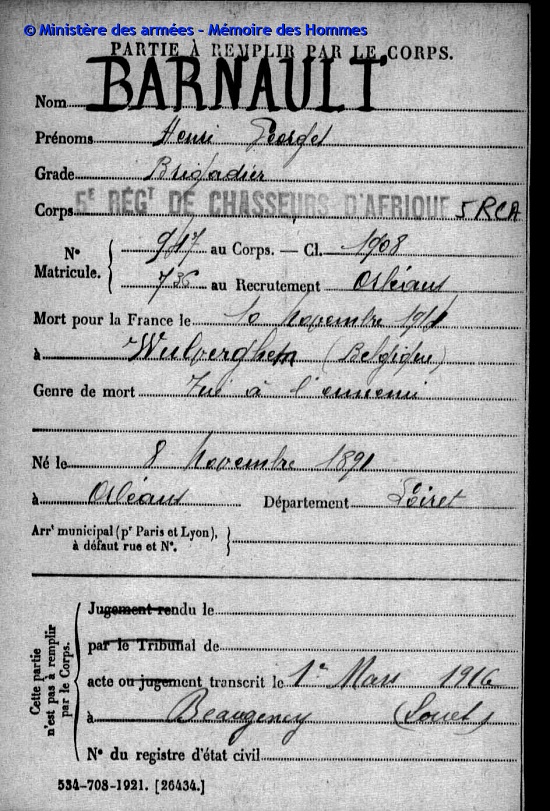 © Ministère des armées - Mémoire des Hommes
PARTIE À REMPLIR PAR LE CORPS.
Nom BARNAULT
Prénoms Henri Georges
Grade Brigadier
Corps 5E RÉGT DE CHASSEURS D'AFRIQUE 5 RCA
N° Matricule. { 947 au Corps. — Cl. 1908
736 au Recrutement Orléans
Mort pour la France le 10 novembre 1914
à Wulverghem (Belgique)
Genre de mort Tué à l'ennemi
Né le 8 Novembre 1891
à Orléans Département Loiret
Arrt municipal (pr Paris et Lyon),
à défaut rue et N°.
Cette partie
n'est pas à remplir
par le Corps.
Jugement rendu le
par le Tribunal de
acte ou jugement transcrit le 1er Mars 1916
à Beaugency (Loiret)
N° du registre d'état civil
534-708-1921. [26434.]